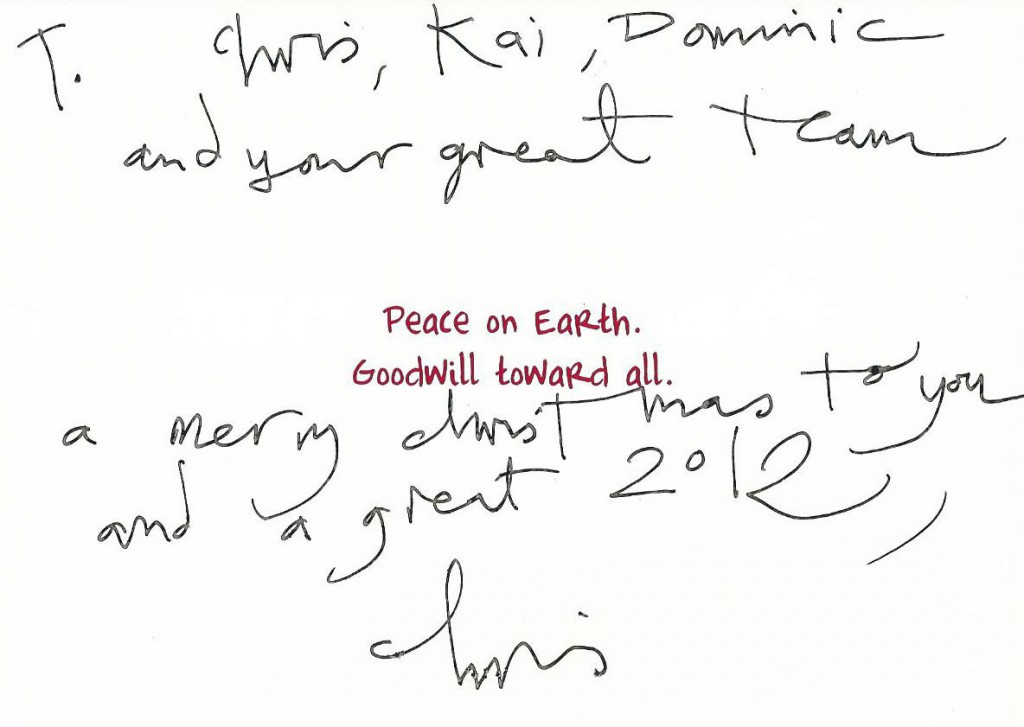 T. Chris, Kai, Dominic
and your great team
Peace on Earth.
Goodwill toward all.
a merry christmas to you
and a great 2012,
chris